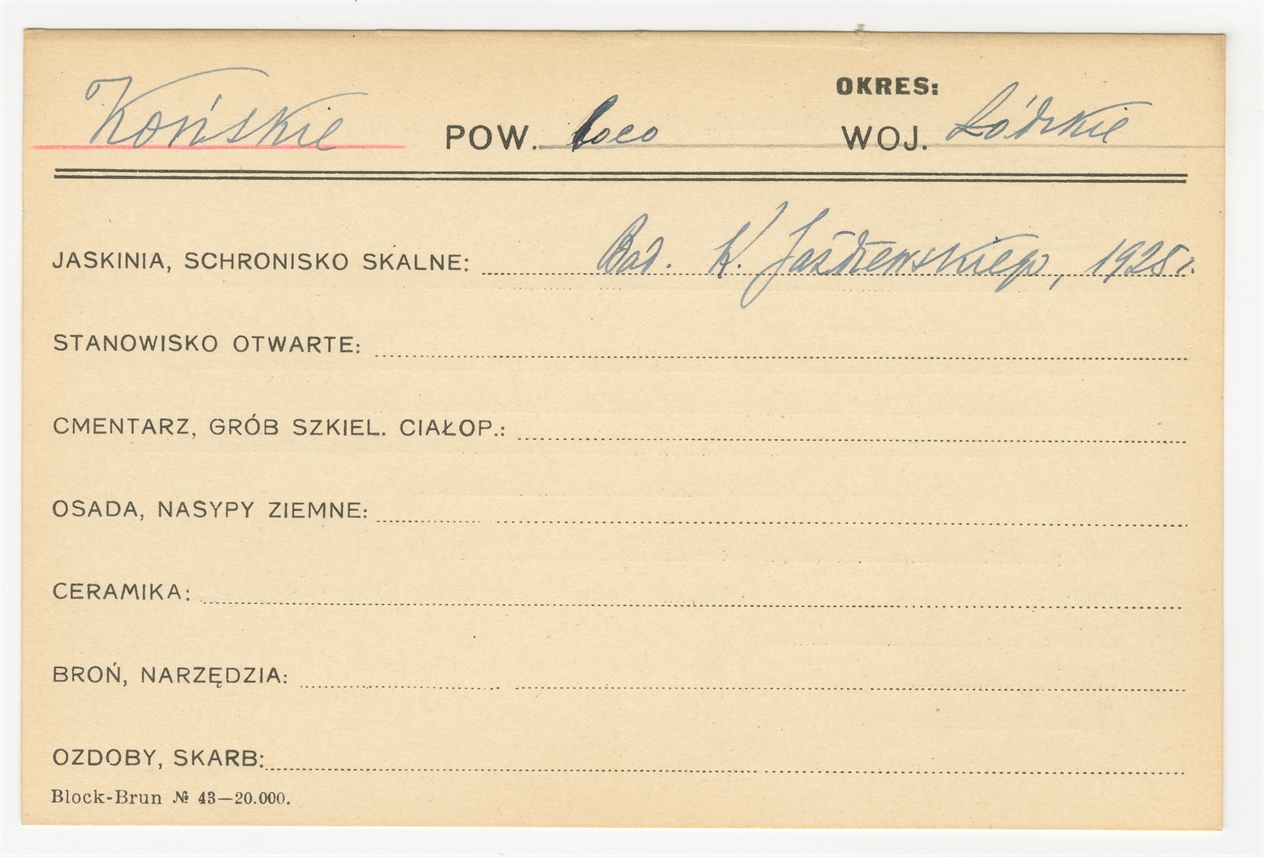 OKRES:
Końskie POW. loco WOJ. Łódzkie
JASKINIA, SCHRONISKO SKALNE: Bad. K. Jażdżewskiego, 1925 r.
STANOWISKO OTWARTE:
CMENTARZ, GRÓB SZKIEL. CIAŁOP.:
OSADA, NASYPY ZIEMNE:
CERAMIKA:
BROŃ, NARZĘDZIA:
OZDOBY, SKARB:
Block-Brun № 43—20.000.